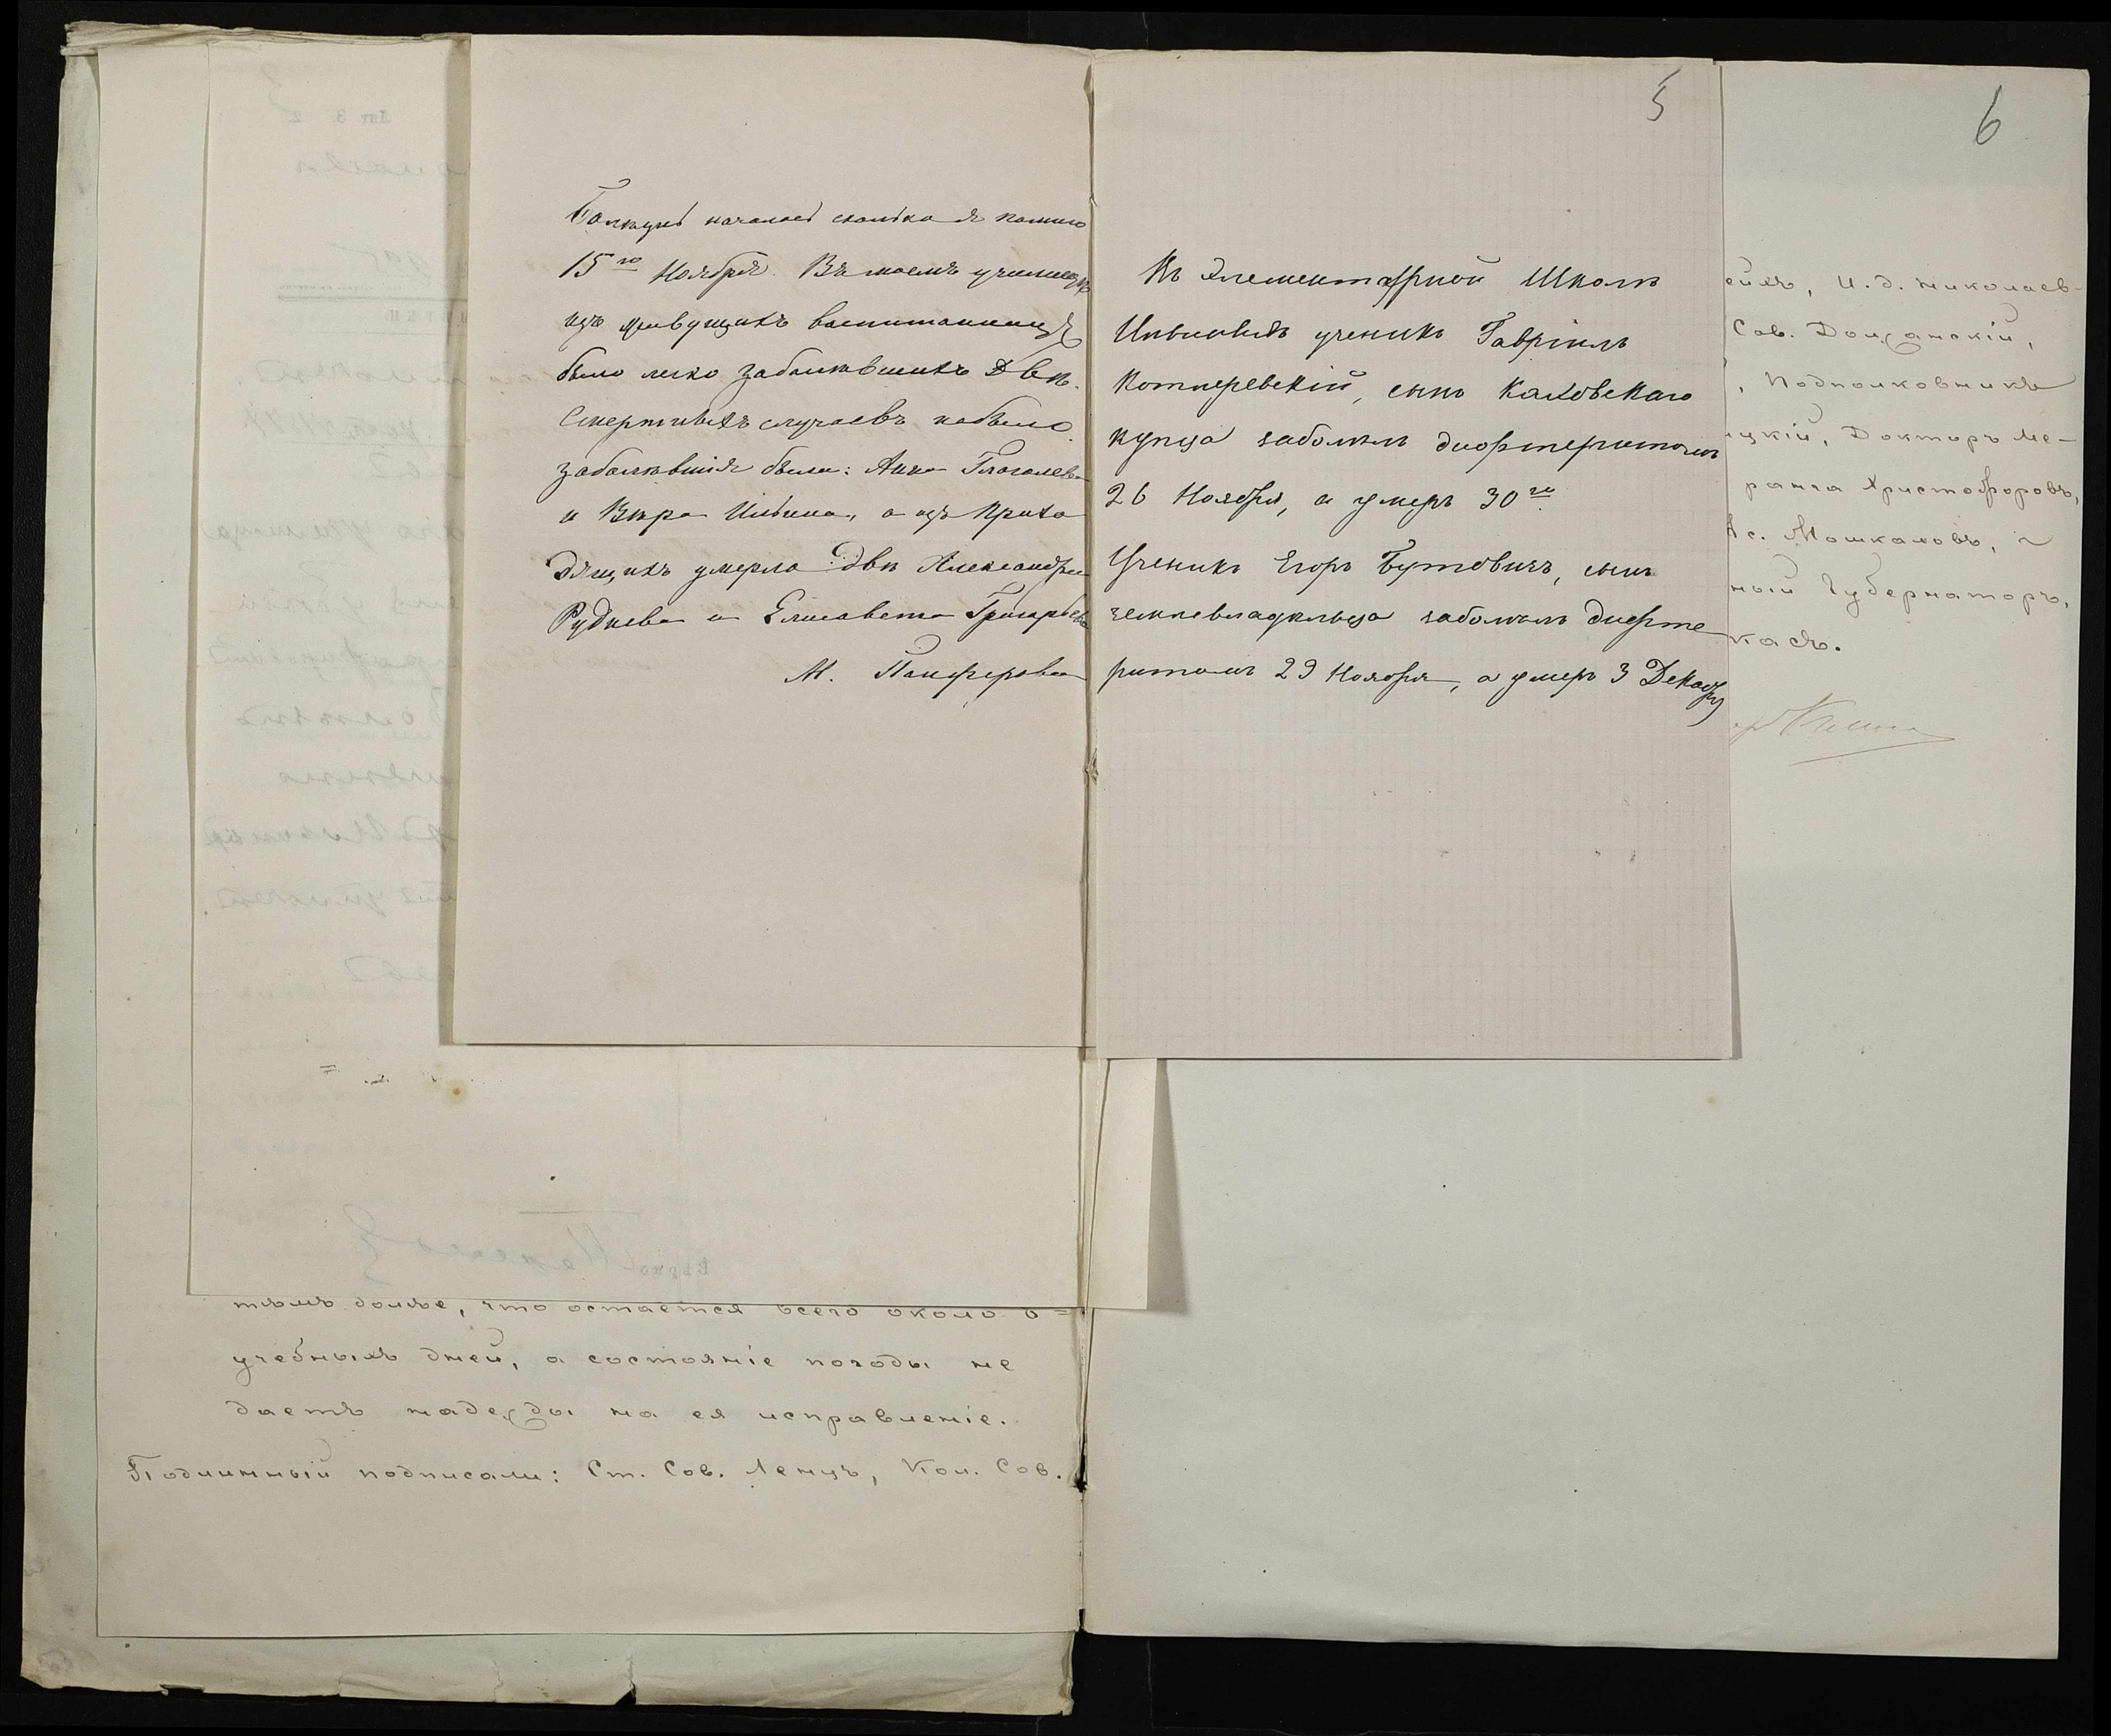 Болезнь началась сколько я помню
15го Ноября. Въ моемъ училищѣ
изъ живущихъ воспитанницъ
было легко заболѣвшихъ двѣ.
Смертныхъ случаевъ небыло.
заболѣвшія были: Анна Глаголева
и Вѣра Ильина, а изъ прихо
дящихъ умерло двѣ Александра
Руднева и Елисавета Григорьева
М. Панферова
5
Въ Элементарной Школѣ
ученикъ Гавріилъ
Котляревскій, сынъ Каховскаго
купца заболѣлъ дифтеритомъ
26 Ноября, а умеръ 30го
Ученикъ Егоръ Бутовичъ, сынъ
землевладѣльца заболѣлъ дифте
ритомъ 29 Ноября, а умеръ 3 Декабря
6
ейхъ, И.д. Николаев-
Сов. Должанскій,
, Подполковникъ
цкій, Докторъ Ме-
ранга Христофоровъ,
Ас. Мошкаловъ, и
ный Губернаторъ,
касъ.
тѣмъ болѣе, что остается всего около 6=
учебныхъ дней, а состояніе погоды не
даетъ надежды на ея исправленіе.
Подлинный подписали: Ст. Сов. Ленцъ, Кол. Сов.